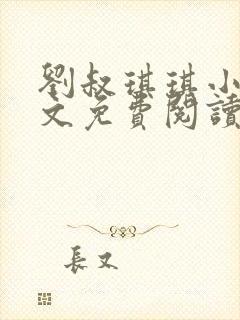 劉叔琪琪小
文免費閱讀
長又